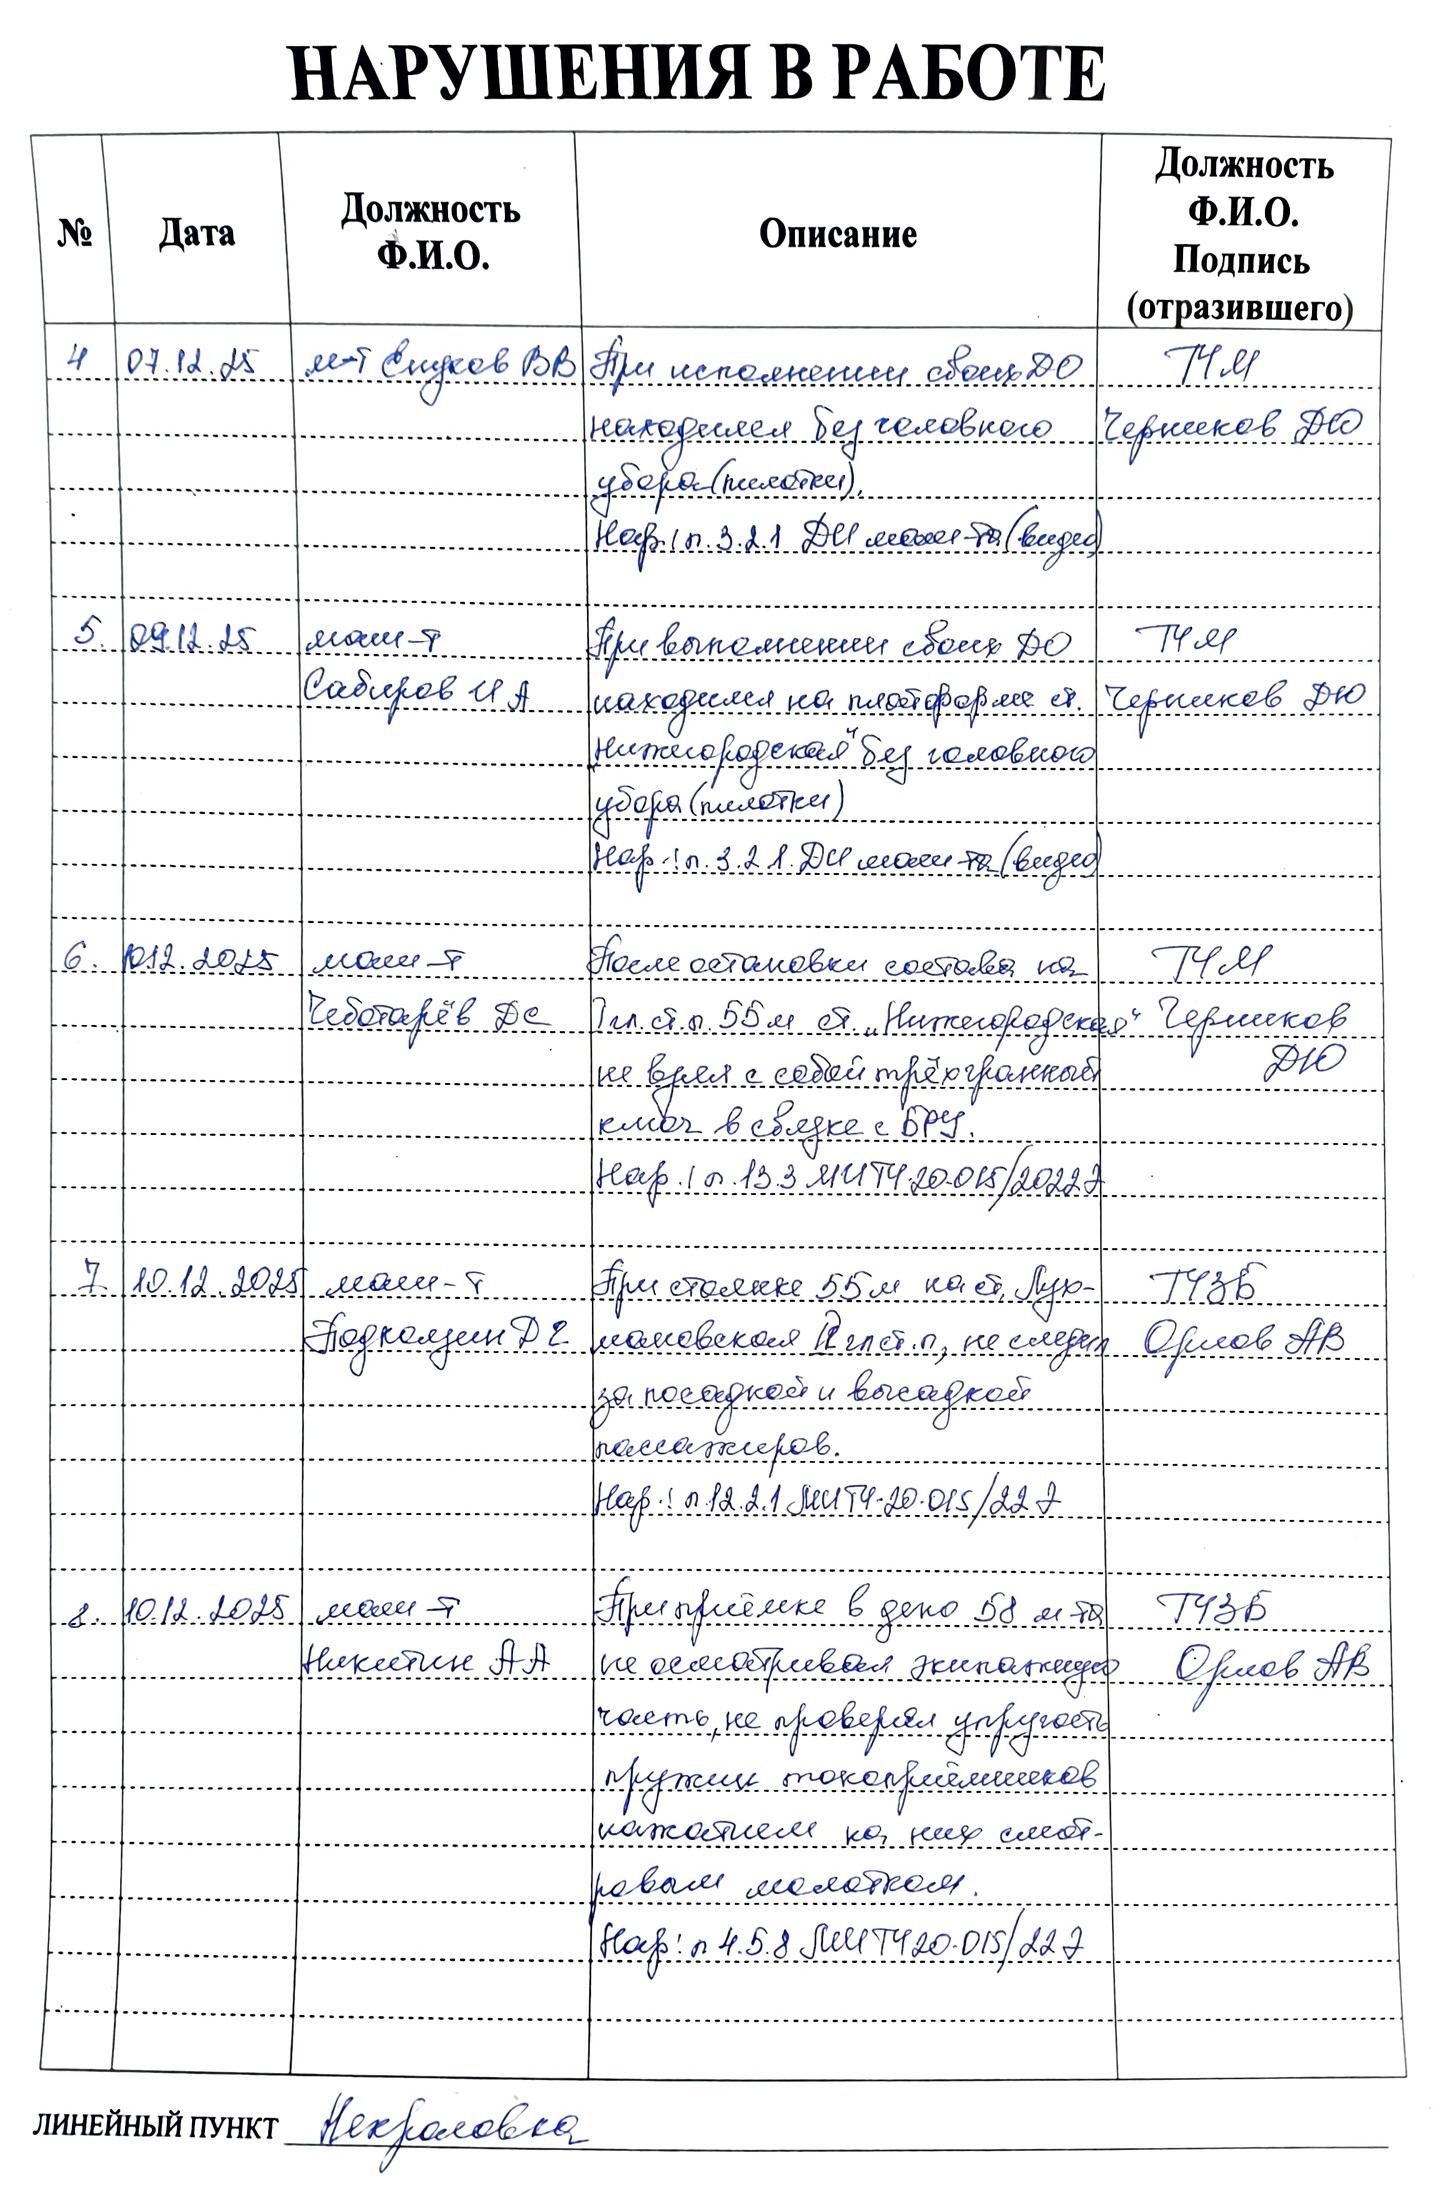 НАРУШЕНИЯ В РАБОТЕ
№ Дата Должность Ф.И.О. Описание Должность Ф.И.О. Подпись (отразившего)
4 07.12.25 м-т ВВ При исполнении своих ДО ТЧМ
находился без головного Черников ДЮ
убора (пилотки).
Нар.! п. 3.2.1 ДИ маш-та (видео)
5. 09.12.25 маш-т При выполнении своих ДО ТЧМ
Сабиров И А находился на платформе ст. Черников ДЮ
„Нижегородская" без головного
убора (пилотки)
Нар.! п. 3.2.1. ДИ маш-та (видео)
6. 10.12.2025 маш-т После остановки состава на ТЧМ
Чеботарёв ДС I гл. ст. п. 55м ст. „Нижегородская" Черников
не взял с собой трёхгранный ДЮ
ключ в связке с БРУ.
Нар.! п. 13.3 МИ ТЧ-20-015/2022г
7. 10.12.2025 маш-т При стоянке 55м на ст. Лух- ТЧЗБ
Подколзин Д Г мановская II гл ст. п, не следил Орлов АВ
за посадкой и высадкой
пассажиров.
Нар.! п 12.2.1 МИ ТЧ-20-015/22г
8. 10.12.2025 маш-т При приёмке в депо 58 м-та ТЧЗБ
Никитин АА не осматривал экипажную Орлов АВ
часть, не проверял упругость
пружин токоприёмников
нажатием на них смот-
ровым молотком.
Нар! п 4.5.8 МИ ТЧ 20-015/22г
ЛИНЕЙНЫЙ ПУНКТ Некрасовка